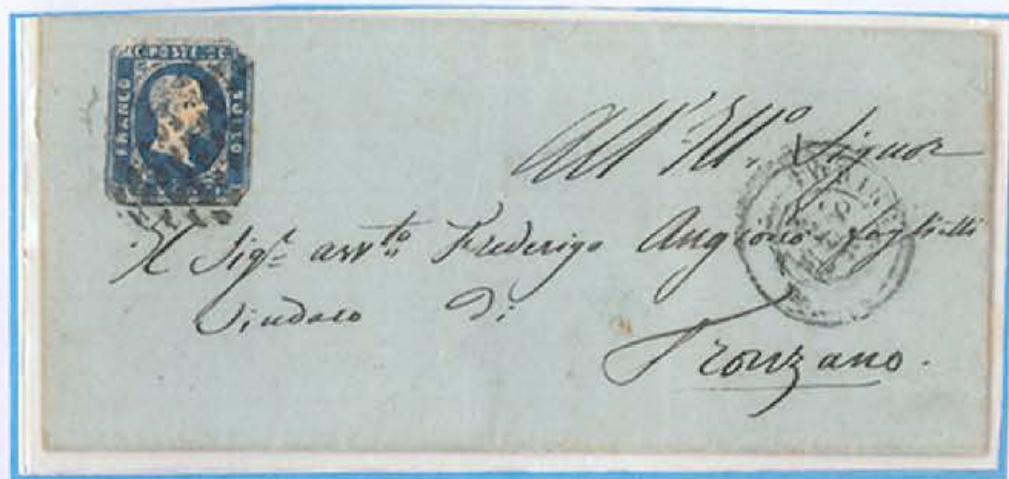 C. POSTE 20
FRANCO
All' Ill.º Signor
Il Sig.r avv.to Frederigo Angiono
Sindaco di
Tronzano.